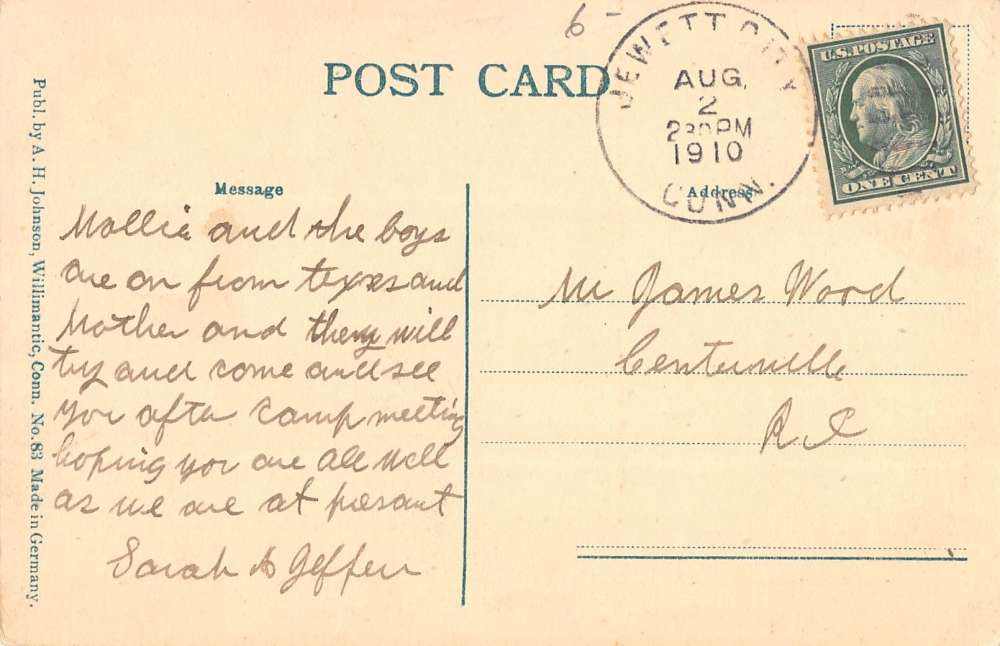 6-
POST CARD
JEWETT CITY
AUG.
2
230PM
1910
CONN.
U.S. POSTAGE
ONE CENT
Message
Address
Mollie and the boys
are on from texes and
Mother and they will
try and come and see
you after camp meeting
hoping you are all well
as we are at presant
Sarah A
Mr James Wood
Centerville
R I
Publ. by A. H. Johnson, Willimantic, Conn. No. 83 Made in Germany.